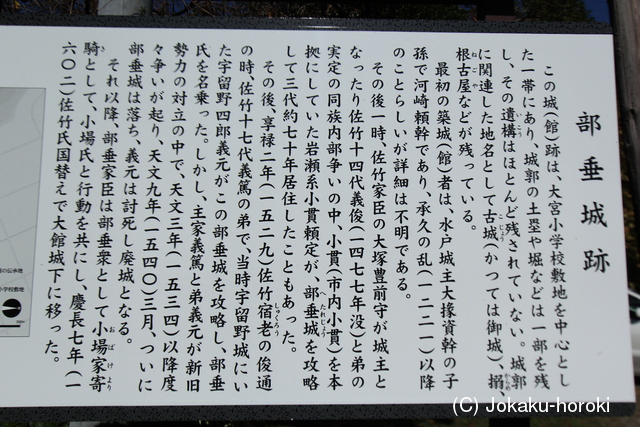 部垂城跡
この城(館)跡は、大宮小学校敷地を中心とし
た一帯にあり、城郭の土塁や堀などは一部を残
し、その遺構はほとんど残されていない。城郭
に関連した地名として古城(かつては御城)、搦
根古屋などが残っている。
最初の築城(館)者は、水戸城主大掾資幹の子
孫で河崎頼幹であり、承久の乱(一二二一)以降
のことらしいが詳細は不明である。
その後一時、佐竹家臣の大塚豊前守が城主と
なったり佐竹十四代義俊(一四七七年没)と弟の
実定の同族内部争いの中、小貫(市内小貫)を本
拠にしていた岩瀬系小貫頼定が、部垂城を攻略
して三代約七十年居住したこともあった。
その後、享禄二年(一五二九)佐竹宿老の俊通
の時、佐竹十七代義篤の弟で、当時宇留野城にい
た宇留野四郎義元がこの部垂城を攻略し、部垂
氏を名乗った。しかし、主家義篤と弟義元が新旧
勢力の対立の中で、天文三年(一五三四)以降度
々争いが起り、天文九年(一五四〇)三月、ついに
部垂城は落ち、義元は討死し廃城となる。
それ以降、部垂家臣は部垂衆として小場家寄
騎として、小場氏と行動を共にし、慶長七年(一
六〇二)佐竹氏国替えで大館城下に移った。
(C) Jokaku-horoki